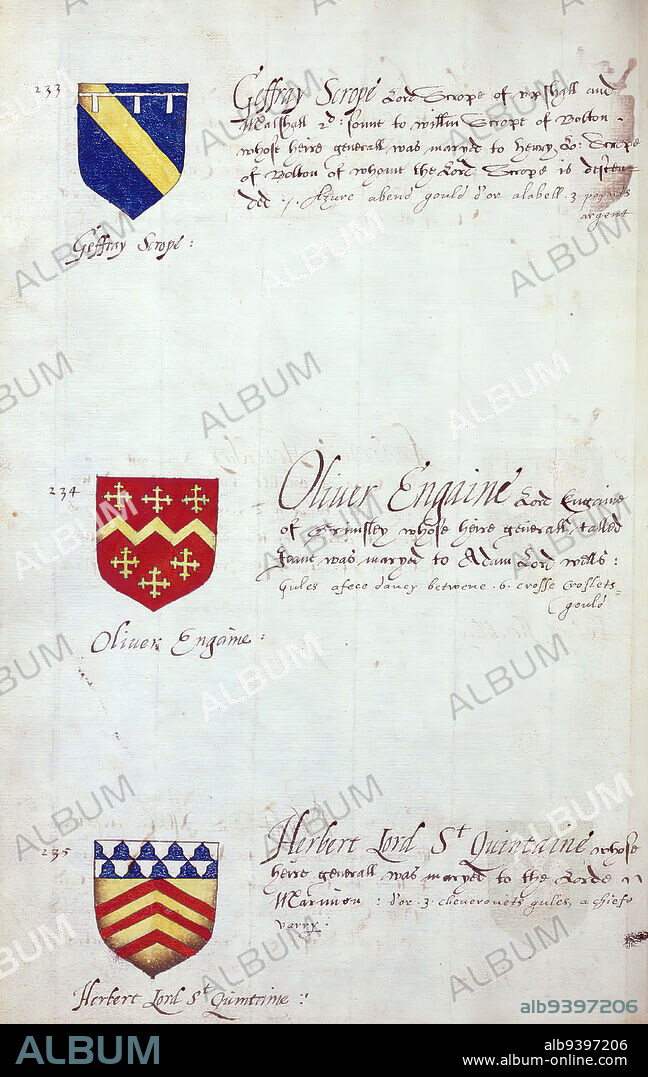 233
Geffray Scrope Lord Scrope of upshall and
Malshall 2d: sonne to willm Scrope of Bolton.
whose heire generall was maryed to Henry Lo: Scrope
of Bolton of whome the Lord Scrope is discen
ded ./. Azure abend gould d'or alabell .3. poynts
argent
Geffray Scrope:
234
Oliver Engaine Lord Engaine
of whose heire generall called
Jeane was maryed to Adam Lord wells:
Gules afece dancy betwene .6. crosse croslets
gould
Oliver Engaine:
235
Herbert Lord St Quintaine whose
heire generall was maryed to the Lorde
Marmion: d'or .3. cheverouets gules, a chiefe
varry.
Herbert Lord St Quintaine:
ALBUM
alb9397206
ALBUM
alb9397206
www.album-online.com